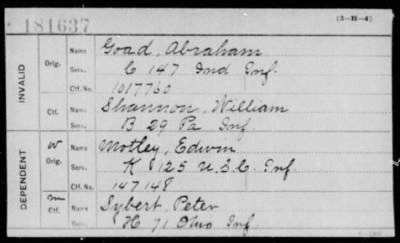 181637 (3-111-4)
INVALID
Orig. Name Goad, Abraham
Serv. C 147 Ind Inf.
Ctf. No. 1017760
Ctf. Name Shannon, William
Serv. B 29 Pa Inf.
DEPENDENT
W Orig. Name Motley, Edwin
Serv. K 125 U.S.C. Inf.
Ctf. No. 147148
m Ctf. Name Sybert, Peter
Serv. H 71 Ohio Inf.